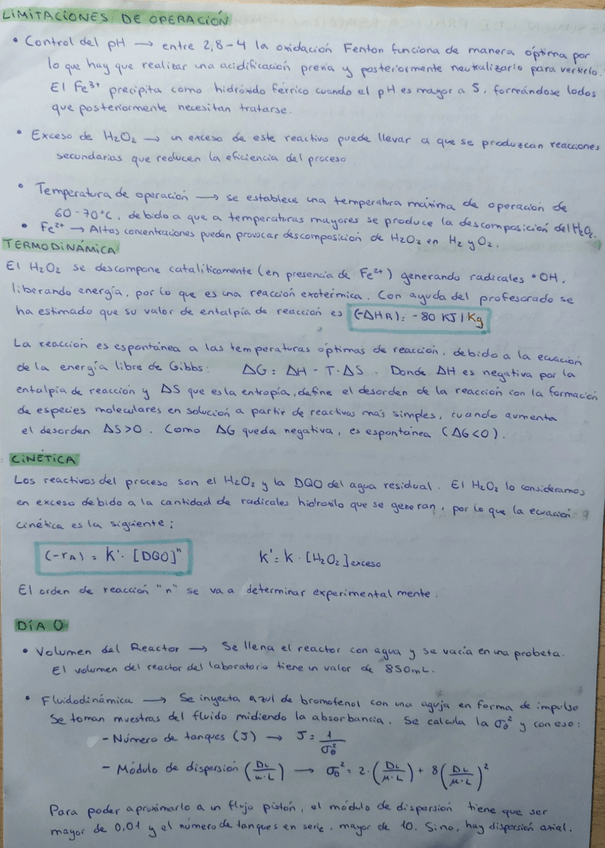 LIMITACIONES DE OPERACIÓN
• Control del pH → entre 2,8-4 la oxidación Fenton funciona de manera óptima por
lo que hay que realizar una acidificación previa y posteriormente neutralizarlo para verterlo.
El Fe³⁺ precipita como hidróxido férrico cuando el pH es mayor a 5, formándose lodos
que posteriormente necesitan tratarse.
• Exceso de H₂O₂ → un exceso de este reactivo puede llevar a que se produzcan reacciones
secundarias que reducen la eficiencia del proceso
• Temperatura de operación → se establece una temperatura máxima de operación de
60-70°C, debido a que a temperaturas mayores se produce la descomposición del H₂O₂.
• Fe²⁺ → Altas concentraciones pueden provocar descomposición de H₂O₂ en H₂ y O₂.
TERMODINÁMICA
El H₂O₂ se descompone catalíticamente (en presencia de Fe²⁺) generando radicales •OH,
liberando energía, por lo que es una reacción exotérmica. Con ayuda del profesorado se
ha estimado que su valor de entalpía de reacción es (-ΔHR)= -80 KJ/Kg
La reacción es espontánea a las temperaturas óptimas de reacción, debido a la ecuación
de la energía libre de Gibbs: ΔG = ΔH - T·ΔS. Donde ΔH es negativa por la
entalpía de reacción y ΔS que es la entropía, define el desorden de la reacción con la formación
de especies moleculares en solución a partir de reactivos más simples, cuando aumenta
el desorden ΔS>0. Como ΔG queda negativa, es espontánea (ΔG<0).
CINÉTICA
Los reactivos del proceso son el H₂O₂ y la DQO del agua residual. El H₂O₂ lo consideramos
en exceso debido a la cantidad de radicales hidroxilo que se generan, por lo que la ecuación
cinética es la siguiente:
(-rA) = K'·[DQO]ⁿ K' = K·[H₂O₂]exceso
El orden de reacción "n" se va a determinar experimentalmente.
DÍA 0
• Volumen del Reactor → Se llena el reactor con agua y se vacía en una probeta.
El volumen del reactor del laboratorio tiene un valor de 850mL.
• Fluidodinámica → Se inyecta azul de bromofenol con una aguja en forma de impulso
Se toman muestras del fluido midiendo la absorbancia. Se calcula la σθ² y con eso:
- Número de tanques (J) → J = 1/σθ²
- Módulo de dispersión (DL/u·L) → σθ² = 2·(DL/u·L) + 8(DL/u·L)²
Para poder aproximarlo a un flujo pistón, el módulo de dispersión tiene que ser
mayor de 0.01 y el número de tanques en serie, mayor de 10. Si no, hay dispersión axial.